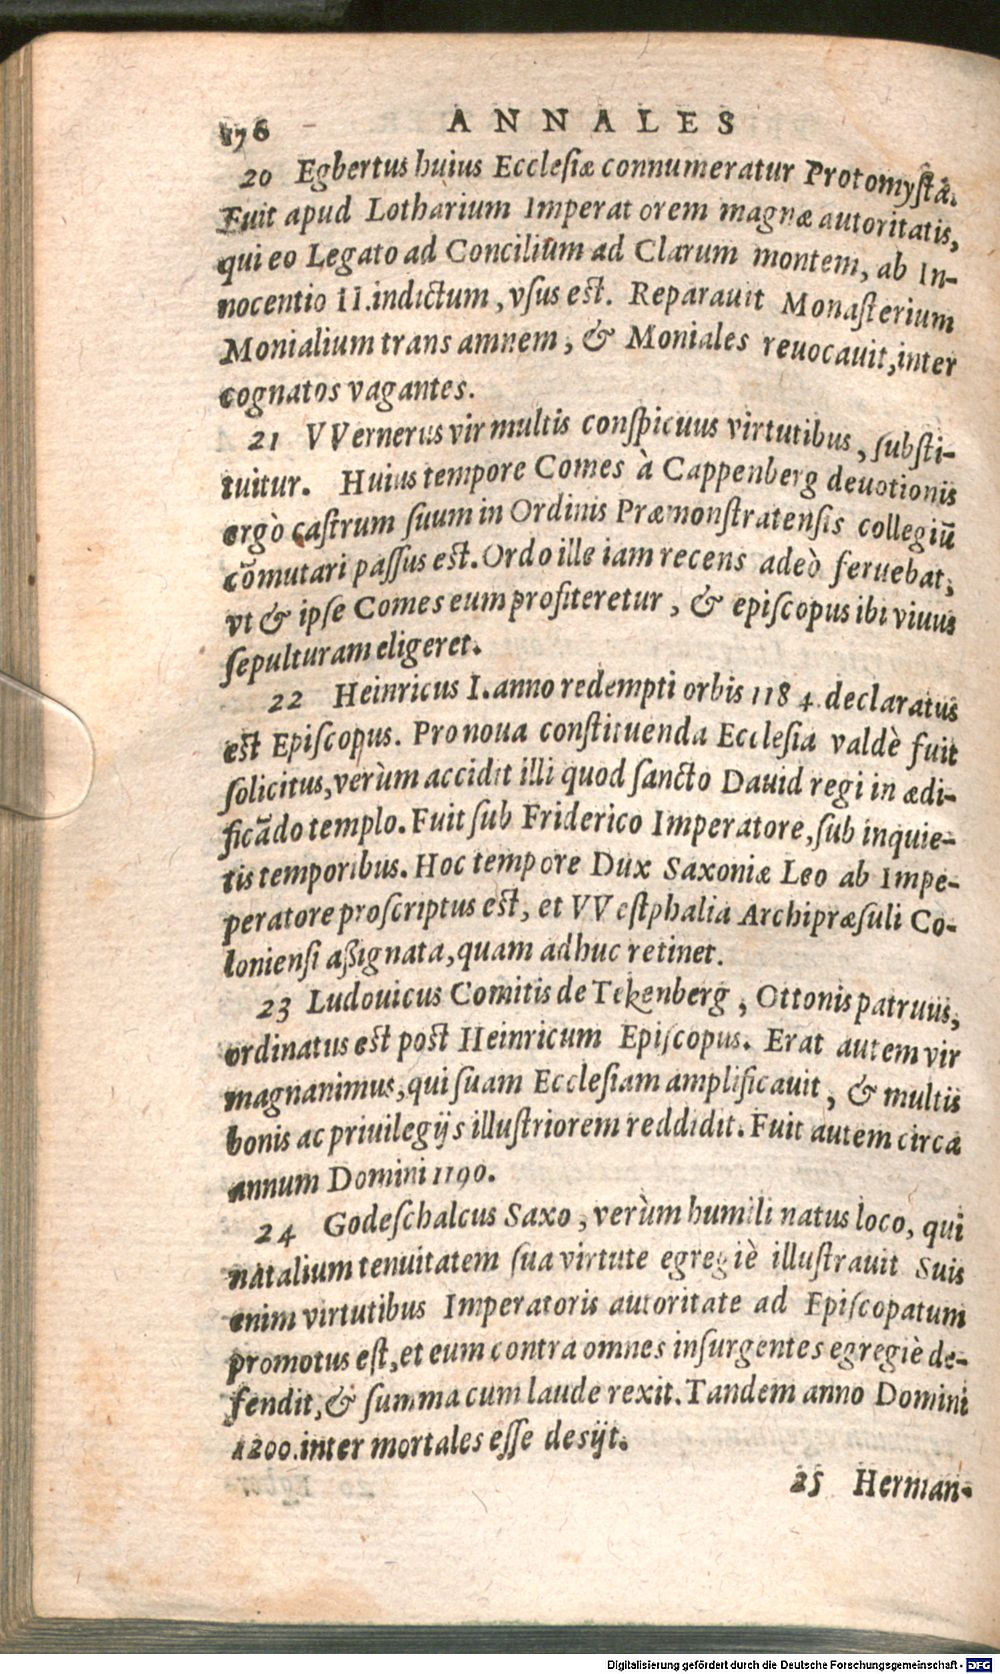 176 ANNALES
20 Egbertus huius Ecclesiæ connumeratur Protomysta.
Fuit apud Lotharium Imperatorem magnæ autoritatis,
qui eo Legato ad Concilium ad Clarum montem, ab In-
nocentio II. indictum, vsus est. Reparauit Monasterium
Monialium trans amnem, & Moniales reuocauit, inter
cognatos vagantes.
21 VVernerus vir multis conspicuus virtutibus, substi-
tuitur. Huius tempore Comes à Cappenberg deuotionis
ergò castrum suum in Ordinis Præmonstratensis collegiū
cōmutari passus est. Ordo ille iam recens adeò feruebat,
vt & ipse Comes eum profiteretur, & episcopus ibi viuus
sepulturam eligeret.
22 Heinricus I. anno redempti orbis 1184. declaratus
est Episcopus. Pro noua constituenda Ecclesia valdè fuit
solicitus, verùm accidit illi quod sancto Dauid regi in ædi-
ficādo templo. Fuit sub Friderico Imperatore, sub inquie-
tis temporibus. Hoc tempore Dux Saxoniæ Leo ab Impe-
peratore proscriptus est, et VVestphalia Archipræsuli Co-
loniensi aßignata, quam adhuc retinet.
23 Ludouicus Comitis de Tekenberg, Ottonis patruus,
ordinatus est post Heinricum Episcopus. Erat autem vir
magnanimus, qui suam Ecclesiam amplificauit, & multis
bonis ac priuilegijs illustriorem reddidit. Fuit autem circa
annum Domini 1190.
24 Godeschalcus Saxo, verùm humili natus loco, qui
natalium tenuitatem sua virtute egregiè illustrauit Suis
enim virtutibus Imperatoris autoritate ad Episcopatum
promotus est, et eum contra omnes insurgentes egregiè de-
fendit, & summa cum laude rexit. Tandem anno Domini
1200. inter mortales esse desijt.
25 Herman-
Digitalisierung gefördert durch die Deutsche Forschungsgemeinschaft - DFG